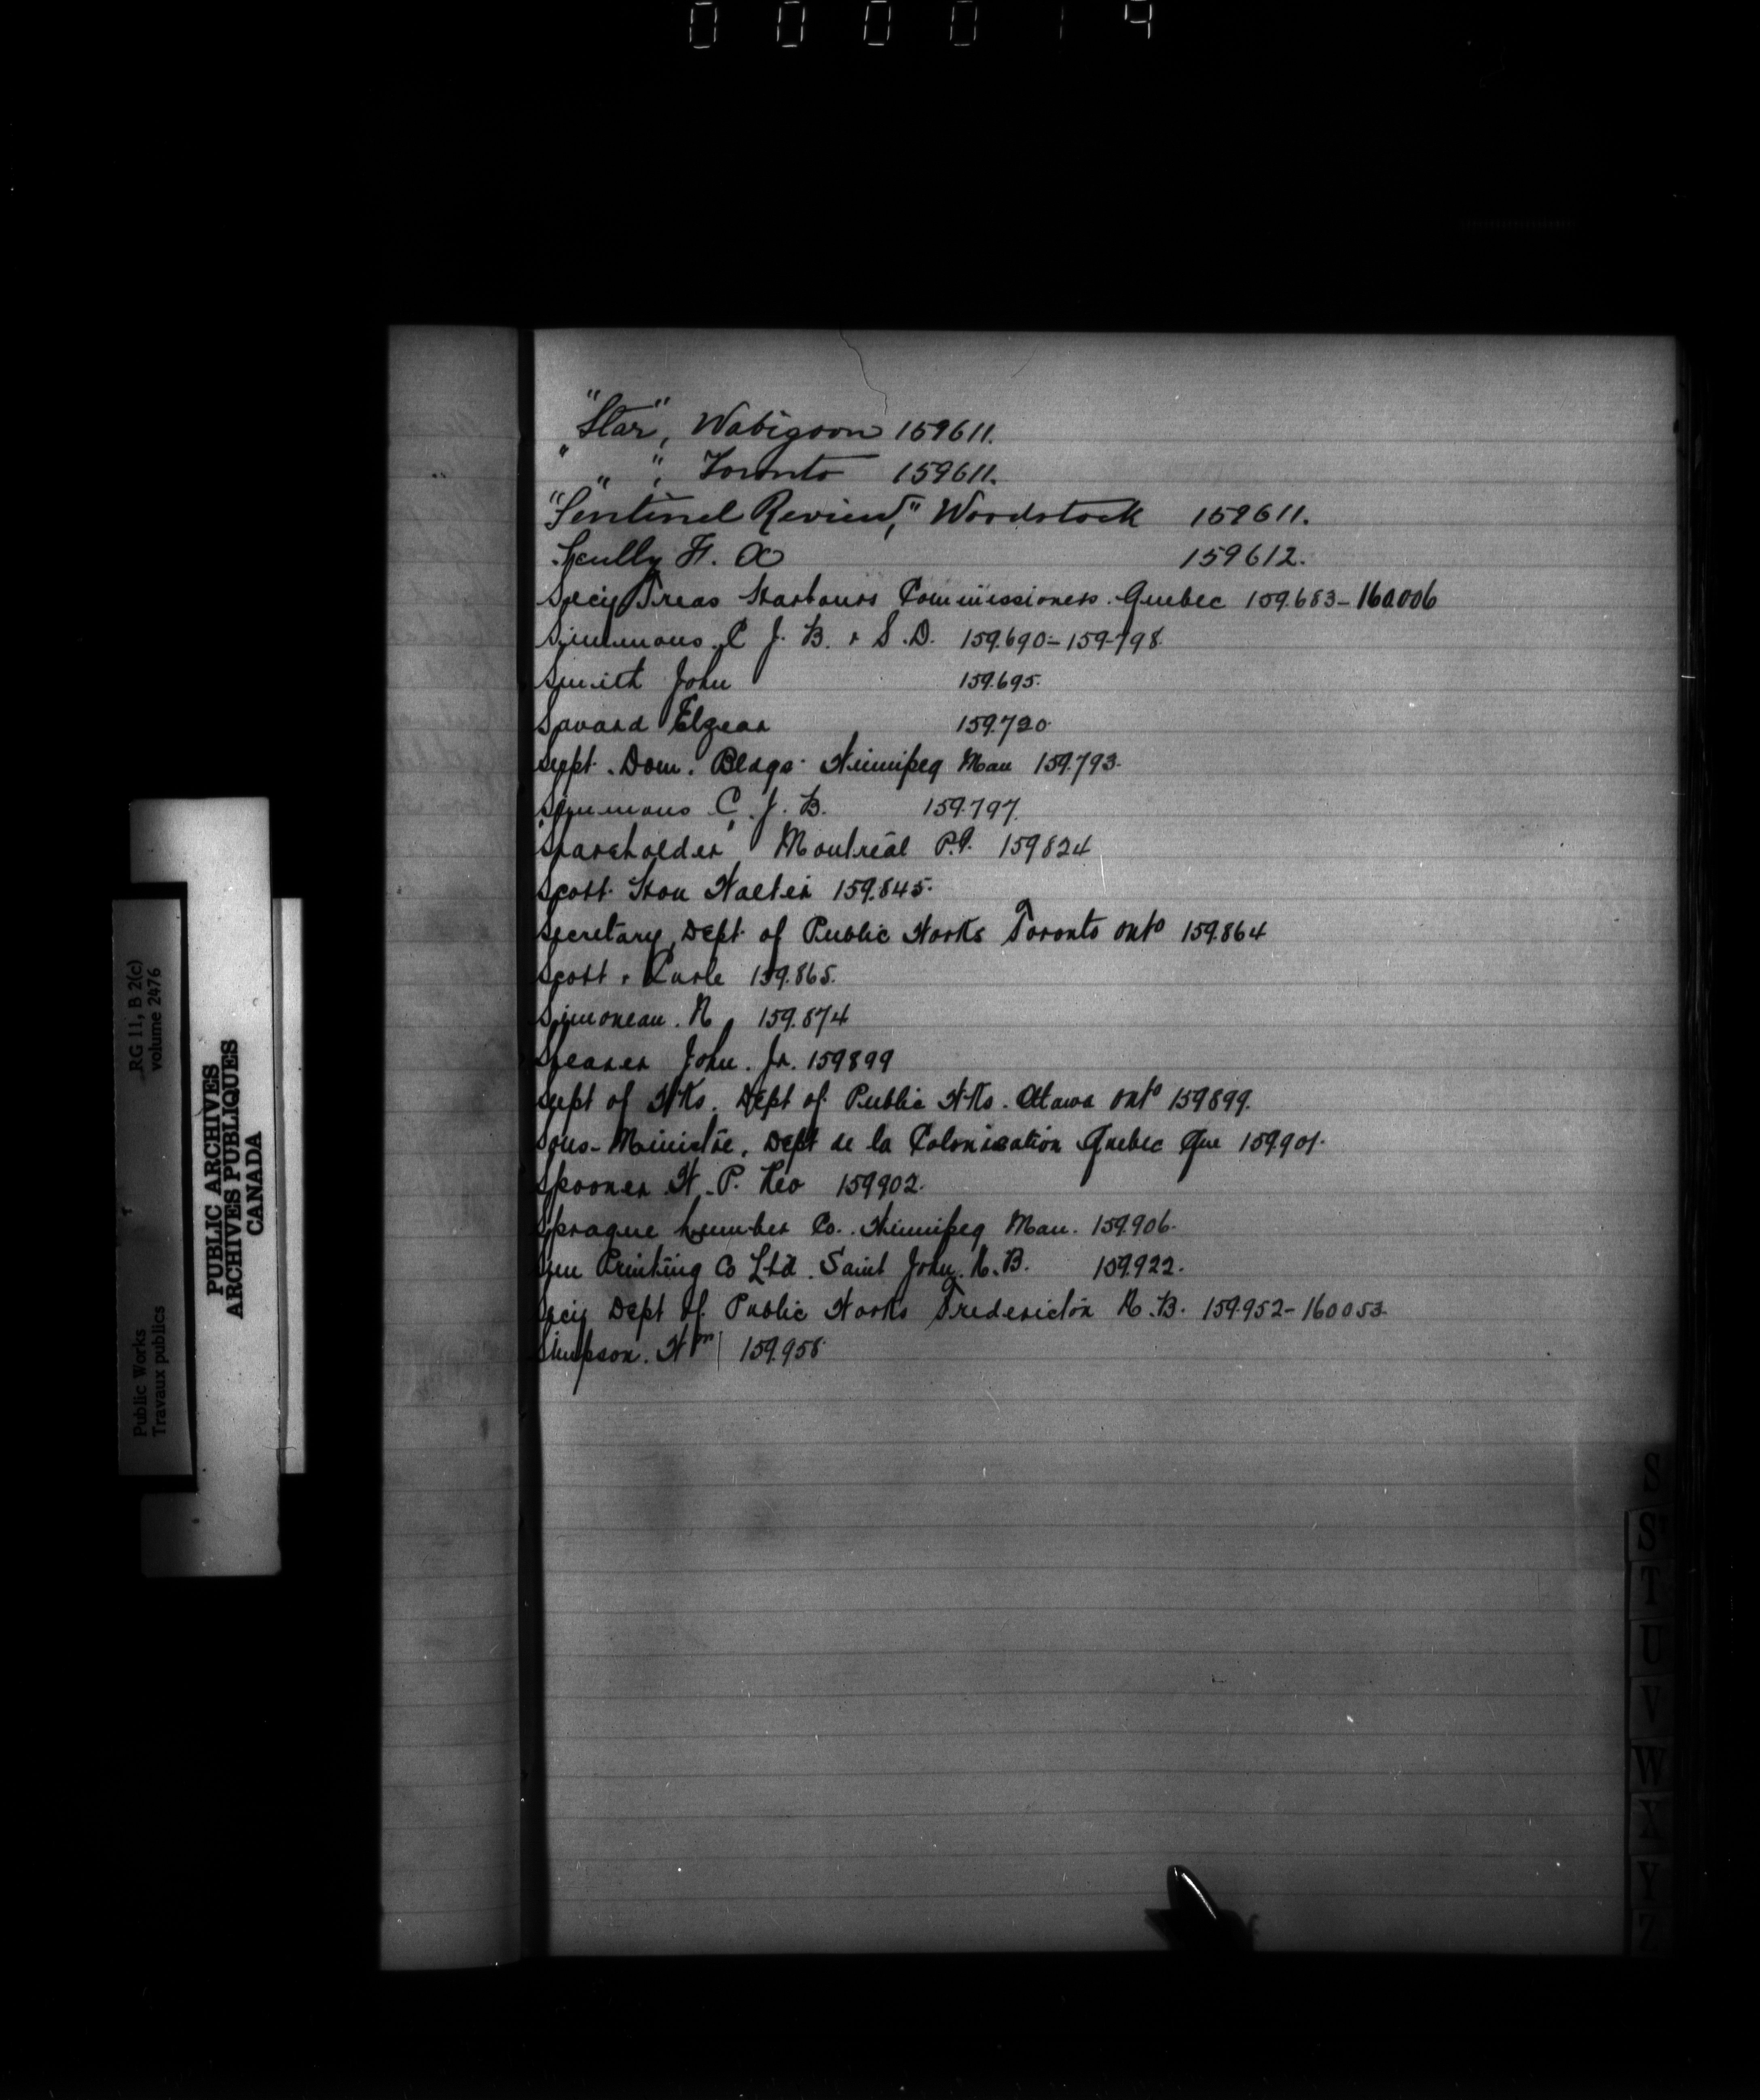 000019
"Star", Wabigoon 159611.
" " , Toronto 159611.
"Sentinel Review," Woodstock 159611.
Scully F. X 159612.
Secy Treas Harbours Commissioners. Quebec 159.683-160.006
Simmons. C J. B. & S. D. 159.690-159.798
Smith John 159.695.
Savard Elzear 159.720
Supt. Dom. Bldgs. Winnipeg Man 159.793.
Simmons C. J. B. 159.797.
"Shareholder" Montreal P.Q. 159824
Scott. Hon Walter 159.845.
Secretary, Dept. of Public Works Toronto Onto 159.864
Scott & 159.865.
Simoneau. N. 159.874
Shearer John. Jr. 159899
Supt of Wks. Dept of Public Wks. Ottawa Onto 159899.
Sous-Ministre, Dept de la Colonisation Quebec Que 159.901.
Spooner W. P. 159902.
Sprague Lumber Co. Winnipeg Man. 159.906.
Sun Printing Co Ltd. Saint John. N. B. 159.922.
Secy Dept of Public Works Fredericton N. B. 159.952-160053.
Simpson. Wm 159.958.
RG 11, B 2(c)
volume 2476
PUBLIC ARCHIVES
ARCHIVES PUBLIQUES
CANADA
Public Works
Travaux publics
S
S
T
U
V
W
X
Y
Z